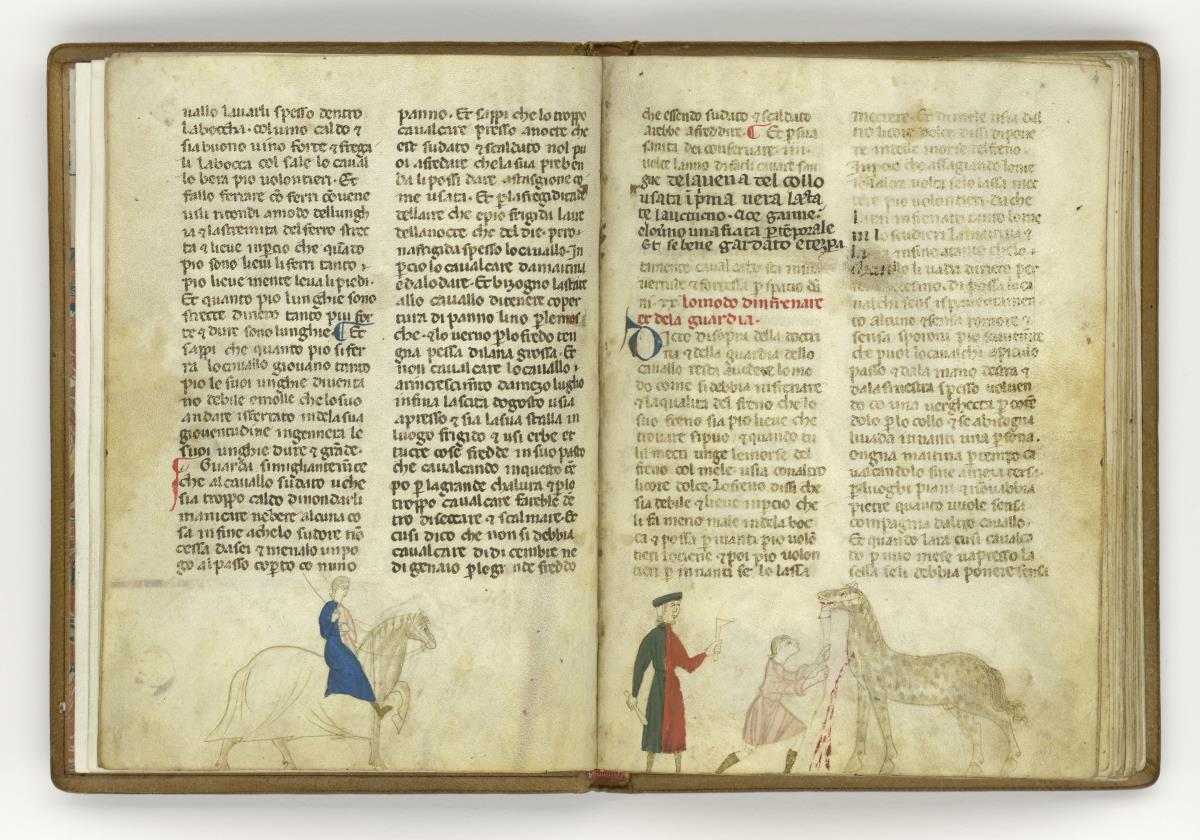 uallo lauarli spesso dentro
laboccha · coluino caldo ⁊
sia buono uino forte ⁊ frega
li labocca col sale lo caual
lo bera pio uolontieri · Et
fallo ferrare cō ferri cōuene
uili ritondi amodo dellungh
ia ⁊ lastremita del ferro stret
ta ⁊ lieue inꝑcio che quāto
pio sono lieui li ferri tanto
pio lieue mente leua li piedi ·
Et quanto pio lunghie sono
strette dinēto tanto piu for
te ⁊ dure sono lunghie ¶ Et
sappi che quanto pio si fer
ra lo cauallo giouano tanto
pio le suoi unghie diuenta
no debile ⁊ molle che lo suo
andare isferrato indela sua
giouentudine ingennera le
suoi unghie dure ⁊ grāde ·
Guarda simigliantemēte
che al cauallo sudato uche
sia troppo caldo dinondarli
māgiare ne bere alcuna co
sa infine achelo sudore nō
cessa dasei ⁊ menalo unpo
go alpasso coꝑto cō nuno
panno · Et sappi che lo troppo
caualcare presso anocte che
est sudato ⁊ scaldato nol pu
oi afredare che la sua preben
da li possi dare astasgione co
me usata · Et ꝑ la frigiditade
dellaire che epio frigida laire
della nocte che del die · pero
nafrigida spesso lo cauallo · In
ꝑcio lo caualcare da maitina
edalodare · Et bizogno lastate
allo cauallo ditenere coper
tura di panno lino ꝑ le mos
che · ⁊ lo uerno ꝑ lo fredo ten
gna pessa di lana grossa · Et
non caualcare lo cauallo ·
arincrescimēto damezo luglio
infina lascita dogosto ⁊ sia
apresso ⁊ sia la sua stalla in
luogo frigido ⁊ usi erbe et
tucte cose fredde in suo pasto
che caualcando inquesto tē
po ꝑ la grande chalura ⁊ ꝑ lo
troppo caualcare fareble dē
tro diseccare ⁊ scalmare · Et
cusi dico che non si debbia
caualcare di dicembre ne
di gennaio ꝑ le grande freddo
che essendo sudato ⁊ scaldato
arebbe afreddire · ¶ Et ꝑ sua
sanita dei conseruare · in ·
uolte lanno di farli cauare san
gue dela uena del collo
usata i pᵐa uera lastate
te lauctuno · cioe ganne ·
elouīno una fiata ꝑ tēporale
Et se bene gardato e tezpa
tamente caualcato sera in sua
uertude ⁊ fortessa ꝑ spacio dā
ni · xx · lo modo dinfrenare
et dela guardia ·
Dicto disopra della doctri
na ⁊ della guardia dello
cauallo resta audere lo mo
do come si debbia infrenare
⁊ la qualita del freno che lo
suo freno sia pio lieue che
trouare si puo · ⁊ quando tu
li metti unge le morse del
freno col mele · u sia con altro
licore dolce · Lo freno dissi che
sia debile ⁊ lieue inꝑcio che
li fa meno male indela boc
ca ⁊ possa ꝑ inanti pio uolē
tieri lo tiene ⁊ poi pio uolon
tieri ꝑ inanti se lo lassa
mectere · Et dimele usia dal
tro licore dolce dissi dipone
re indelle morse delfreno ·
Inꝑcio che assagiando lo me
le laltra uolta se lo lassa met
tere pio uolentieri · da che
infrenato tanto lo me
ni lo scudieri la maitina ⁊
la sera infine atanto chelo
li uada dirieto ꝑ se
medesmo · di poi si lo ca
ualchi sens isproni ⁊ amenta
to alcuno ⁊ sensa romore ⁊
sensa sporoni pio soauemente
che puoi lo caualchi apiciulo
passo ⁊ dala mano destra ⁊
dala sinestra spesso uoluen
do cō una uerghecta ꝑ cotē
dolo ꝑ lo collo ⁊ se abisogna
li uada innanti una ꝑsona ·
ongna maitina ꝑ tempo ca
ualcandolo fine amesa tersa ·
ꝑ luoghi piani ⁊ nō uabbia
pietre quanto uuole sensa
compagnia daltro cauallo ·
Et quando lara cusi caualca
to ꝑ uno mese uapresso la
sella se li debbia ponere sensa